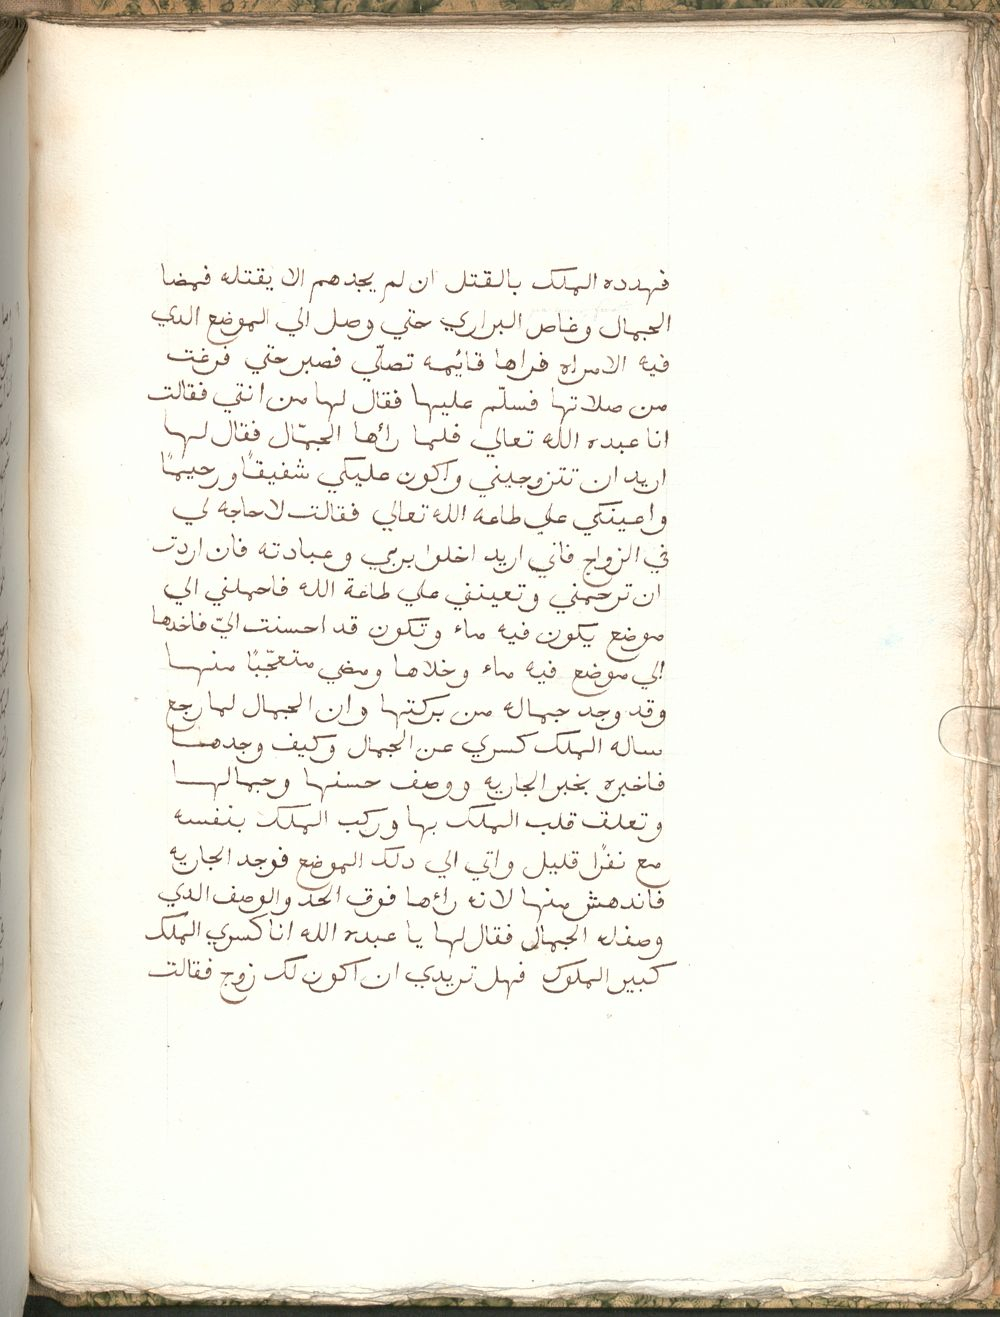 فهدده الملك بالقتل ان لم يجدهم الا يقتله فمضا
الجمال وغاص البراري حتي وصل الي الموضع الدي
فيه الامراه فراها قائيمه تصلّي فصبر حتي فرغت
من صلاتها فسلّم عليها فقال لها من انتي فقالت
انا عبده الله تعالي فلما رأها الجمّال فقال لها
اريد ان تتزوجيني واكون عليكي شفيقًا ورحيمًا
واعينكي علي طاعه الله تعالي فقالت لا حاجه لي
في الزواج فاني اريد اخلوا بربي وعبادته فان اردت
ان ترحمني وتعينني علي طاعة الله فاحملني الي
موضع يكون فيه ماء وتكون قد احسنت اليّ فاخدها
الي موضع فيه ماء وخلاها ومضي متعجّبًا منها
وقد وجد جماله من بركتها وان الجمال لما رجع
ساله الملك كسري عن الجمال وكيف وجدها
فاخبره بخبر الجاريه ووصف حسنها وجمالها
وتعلق قلب الملك بها وركب الملك بنفسه
مع نفرًا قليل واتي الي دلك الموضع فوجد الجاريه
فاندهش منها لانه رأها فوق الحد والوصف الدي
وصفله الجمال فقال لها يا عبده الله انا كسري الملك
كبير الملوك فهل تريدي ان اكون لك زوج فقالت